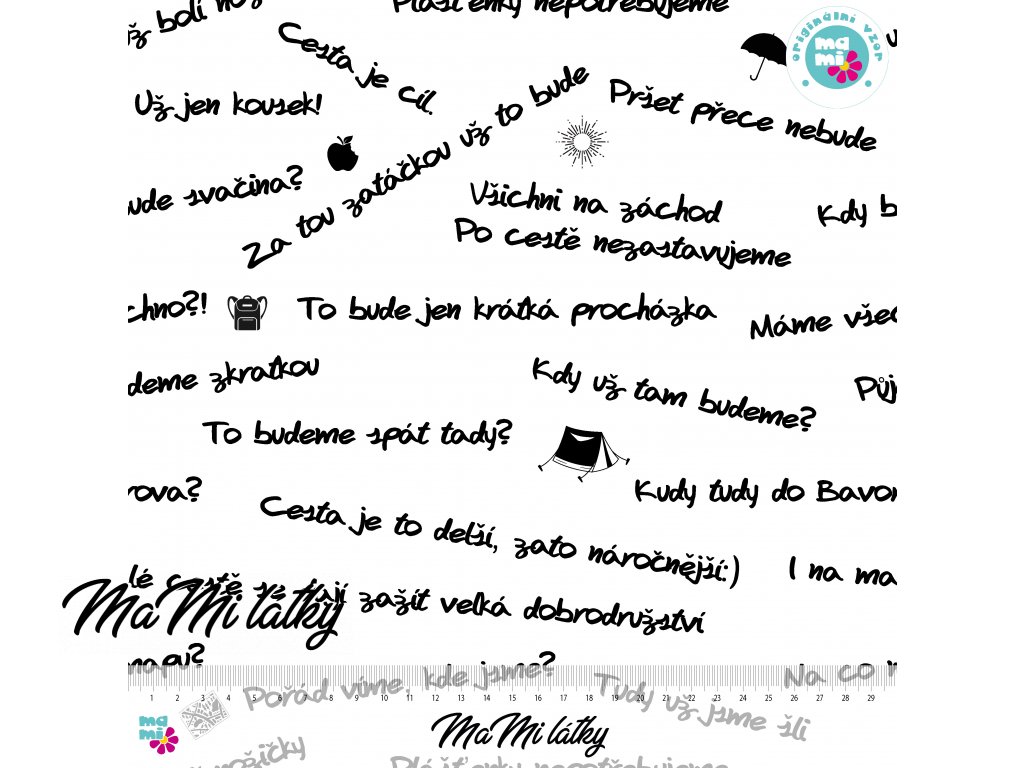 už bolí no
Pláštěnky nepotřebujeme
originální vzor
ma
mi
Cesta je cíl.
Už jen kousek!
Za tou zatáčkou už to bude
Pršet přece nebude
ude svačina?
Všichni na záchod
Kdy b
Po cestě nezastavujeme
chno?!
To bude jen krátká procházka
Máme všec
deme zkratkou
Kdy už tam budeme?
Půj
To budeme spát tady?
rova?
Kudy tudy do Bavor
Cesta je to delší, zato náročnější:)
I na ma
lé cestě se dají zažít velká dobrodružství
MaMi látky
mapu?
Pořád víme, kde jsme?
Na co
1 2 3 4 5 6 7 8 9 10 11 12 13 14 15 16 17 18 19 20 21 22 23 24 25 26 27 28 29
Tudy už jsme šli
ma
mi
MaMi látky
nožičky
Pláštěnky nepotřebujeme